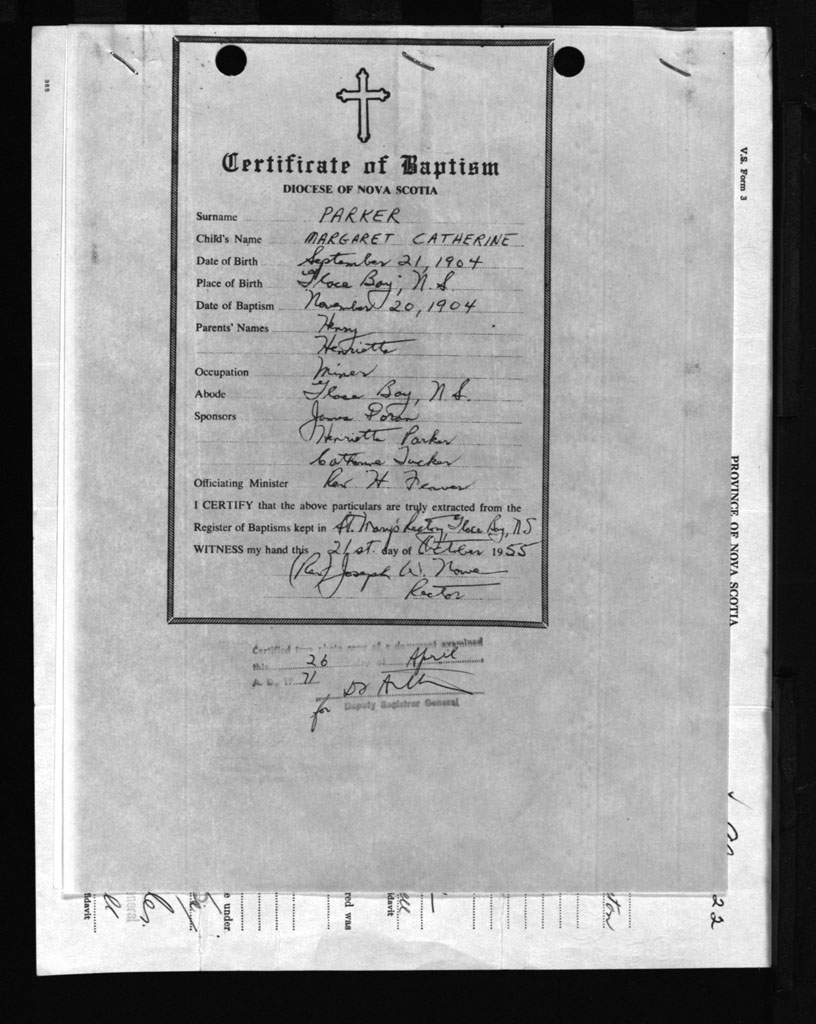 Certificate of Baptism
DIOCESE OF NOVA SCOTIA
Surname PARKER
Child's Name MARGARET CATHERINE
Date of Birth September 21, 1904
Place of Birth Glace Bay, N.S.
Date of Baptism November 20, 1904
Parents' Names Henry
Henrietta
Occupation Miner
Abode Glace Bay, N.S.
Sponsors James Doran
Henrietta Parker
Catherine Tucker
Officiating Minister Rev H.
I CERTIFY that the above particulars are truly extracted from the
Register of Baptisms kept in St. Mary's Rectory, Glace Bay, N.S
WITNESS my hand this 21st. day of October 1955
(Rev) Joseph W. Nowe
Rector
Certified true photo copy of a document examined
this 26 day of April
A. D., 19 71
for Deputy Registrar General
V.S. Form 3
PROVINCE OF NOVA SCOTIA
22
ton
red was
e under